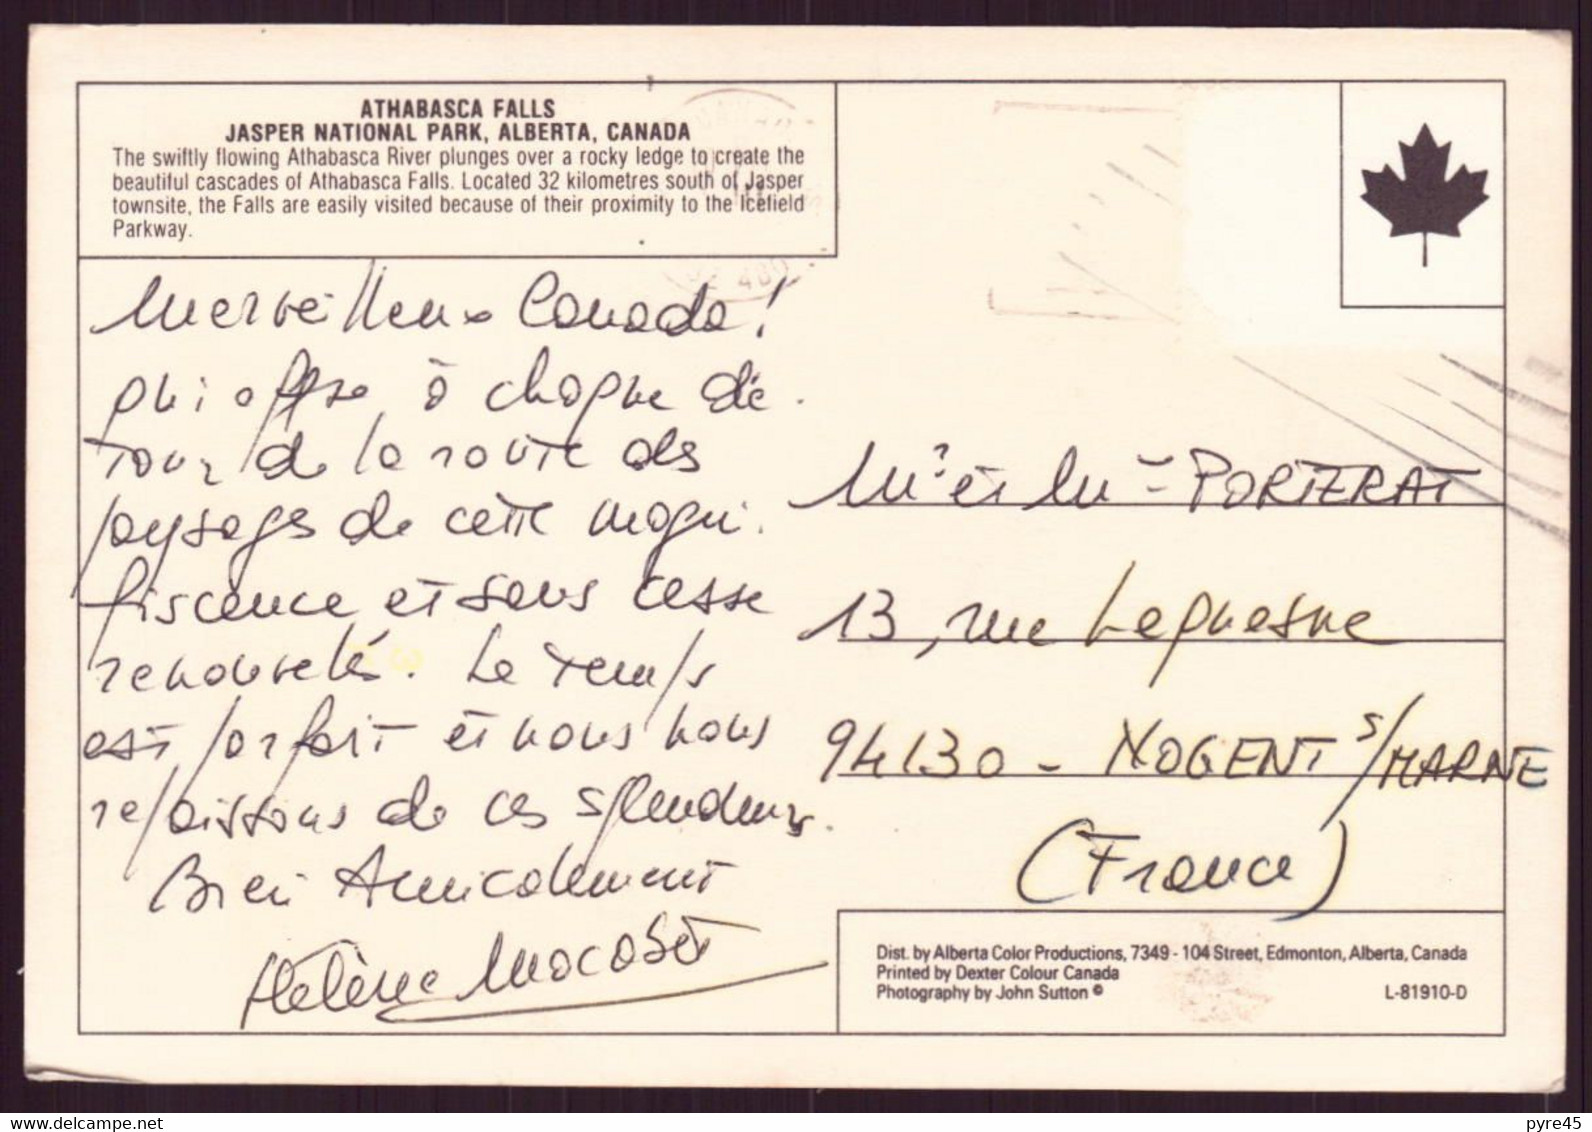 ATHABASCA FALLS
JASPER NATIONAL PARK, ALBERTA, CANADA
The swiftly flowing Athabasca River plunges over a rocky ledge to create the
beautiful cascades of Athabasca Falls. Located 32 kilometres south of Jasper
townsite, the Falls are easily visited because of their proximity to the Icefield
Parkway.
Merveilleux Canada !
qui offre à chaque dé-
tour de la route des
paysages de cette magni-
ficence et sans cesse
renouvelés. Le temps
est parfait et nous nous
réjouissons de ces splendeurs.
Bien Amicalement
Hélène
Mr et Mme PORTERAT
13, rue Lequesne
94130 - NOGENT s/MARNE
(France)
Dist. by Alberta Color Productions, 7349 - 104 Street, Edmonton, Alberta, Canada
Printed by Dexter Colour Canada
Photography by John Sutton ©
L-81910-D
www.delcampe.net
pyre45